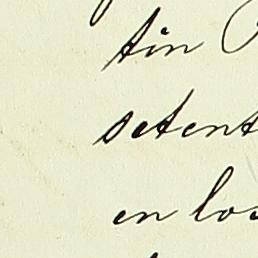 tin
setent
en los